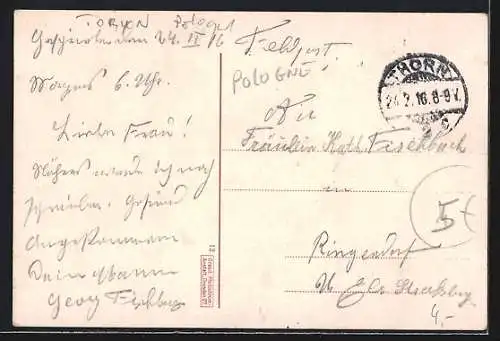 TORUN Pologne
Geschrieben den 24. II 16
Morgens 6. Uhr.
Liebe Frau!
Näheres werde ich noch
schreiben. Gesund
Angekommen
Dein Mann
Georg Fischbach
Feldpost!
POLOGNE
THORN
24.2.16.8-9V.
An
Fräulein Kath. Fischbach
in
Ringendorf
U Els Straßbg
5€
4,-
12